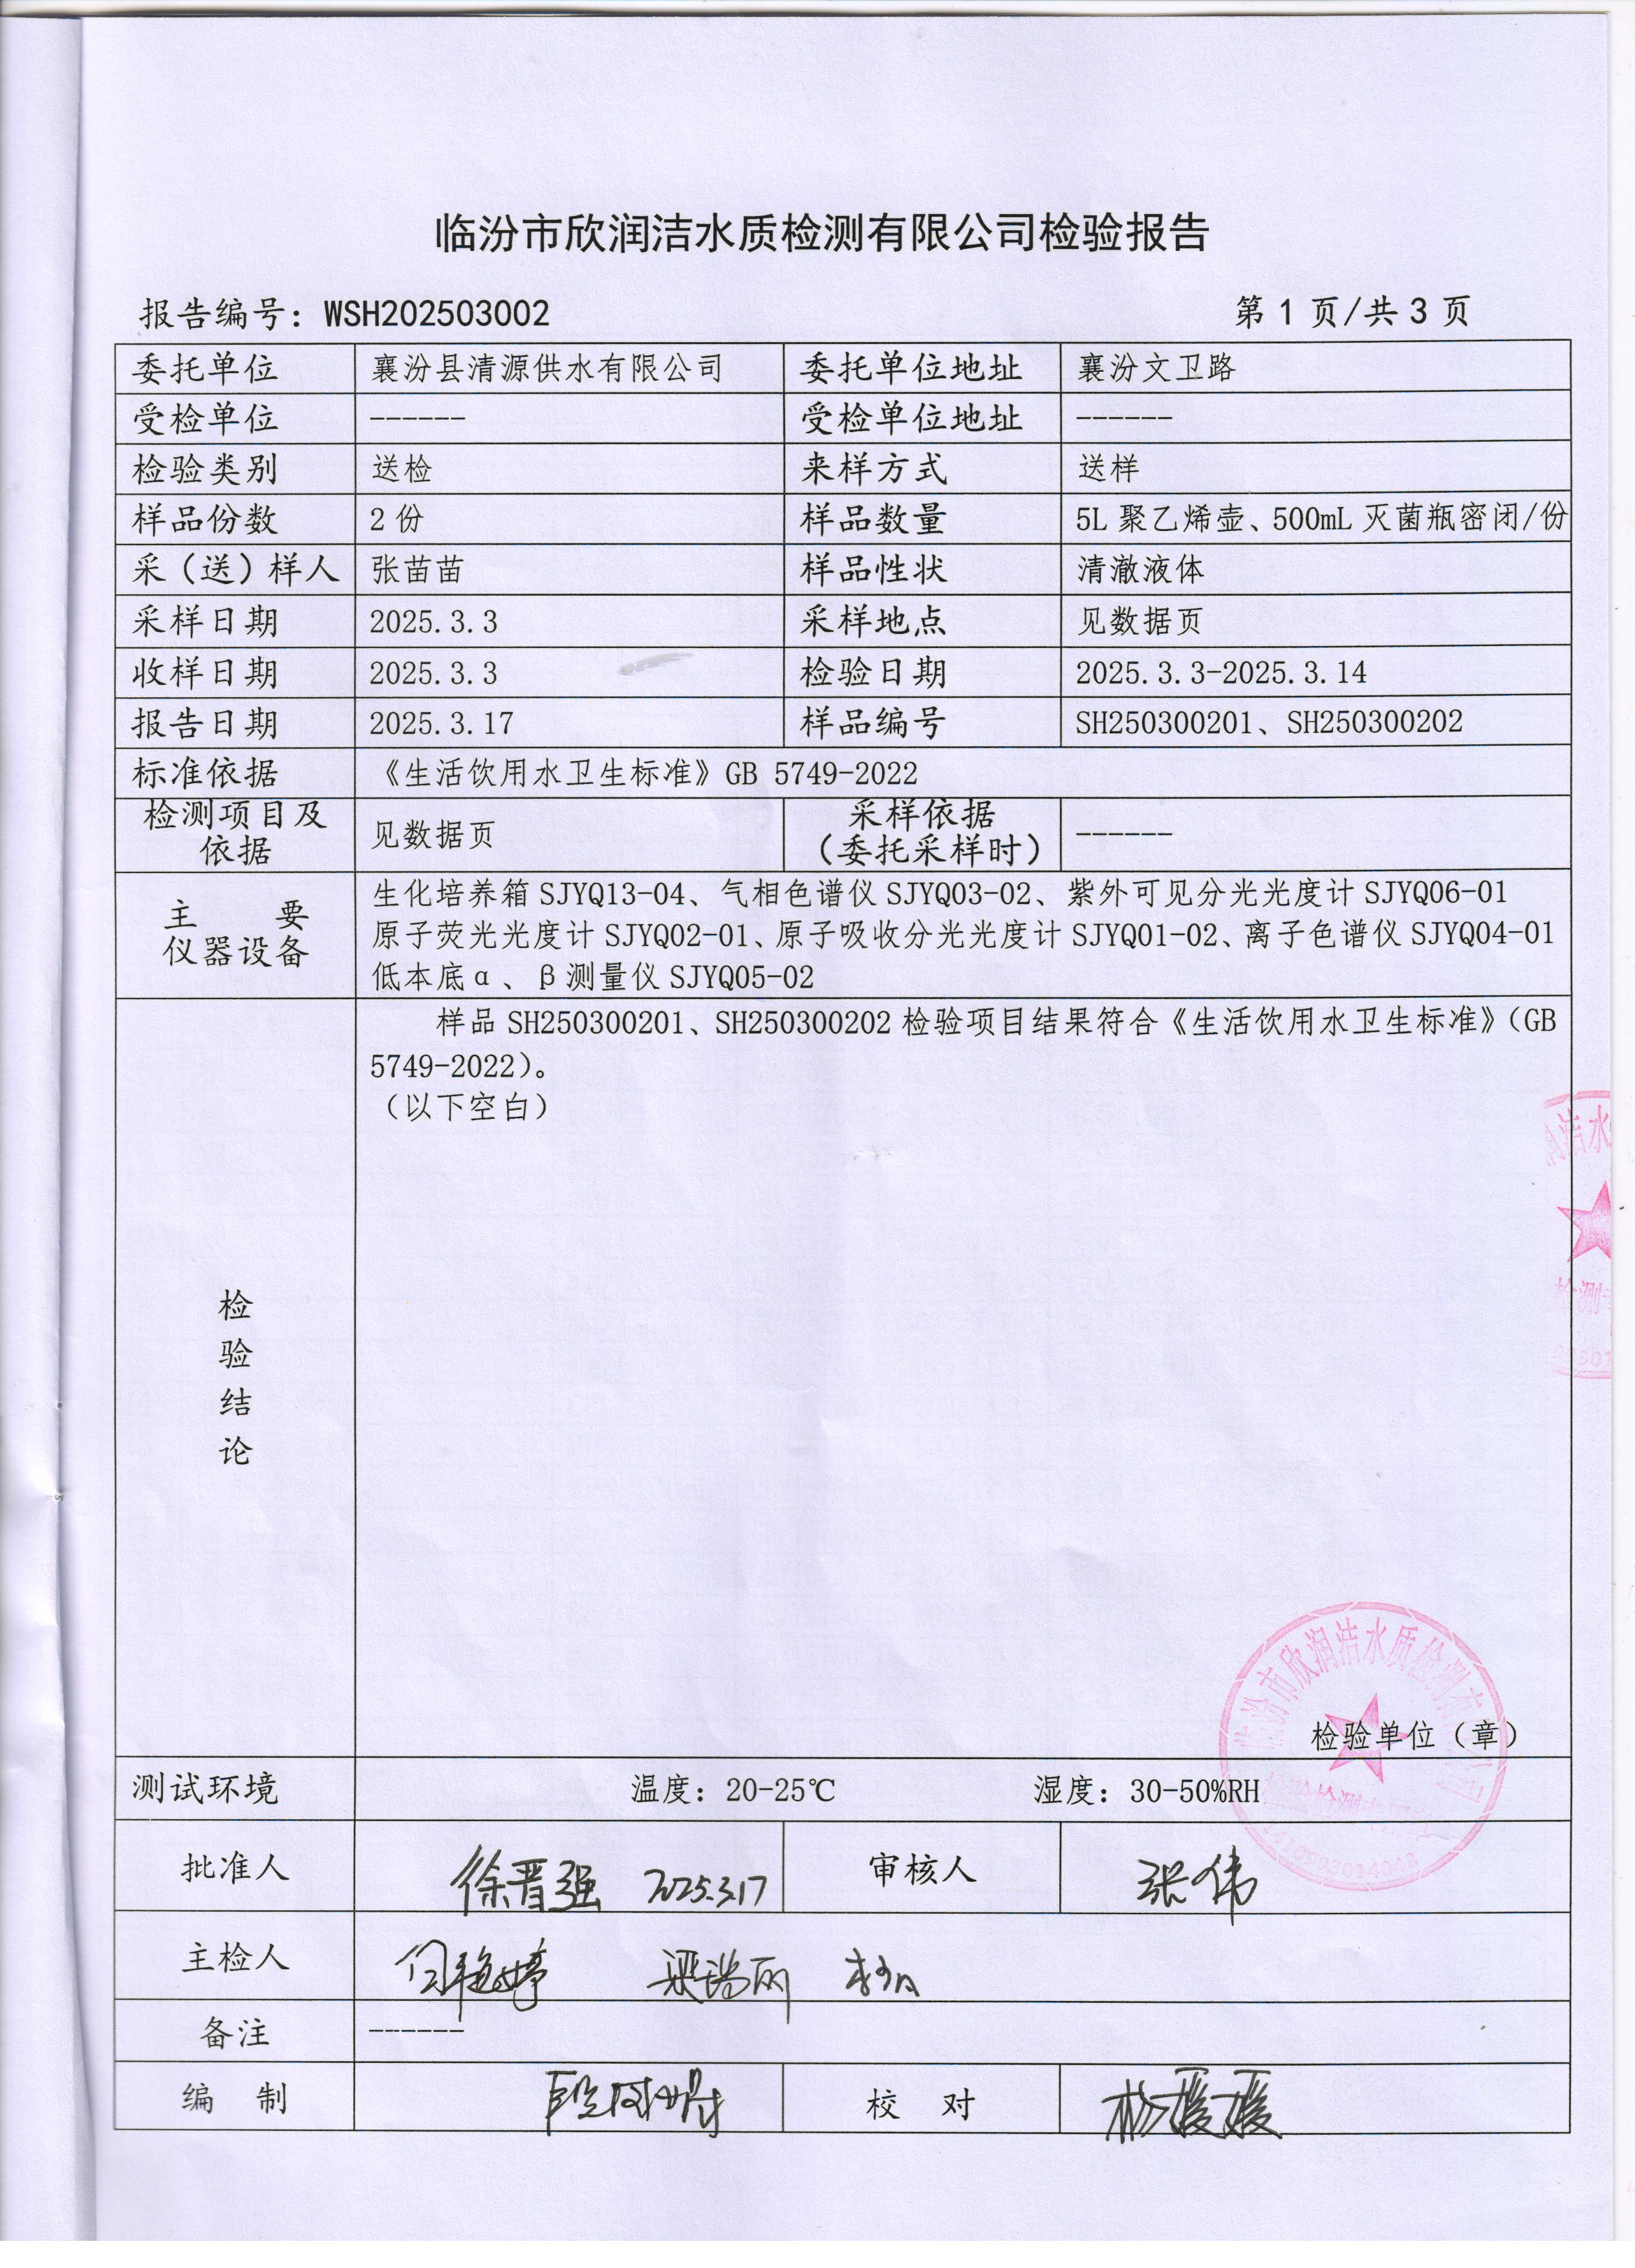 临汾市欣润洁水质检测有限公司检验报告
报告编号：WSH202503002 第 1 页/共 3 页
委托单位 襄汾县清源供水有限公司 委托单位地址 襄汾文卫路
受检单位 ------ 受检单位地址 ------
检验类别 送检 来样方式 送样
样品份数 2 份 样品数量 5L 聚乙烯壶、500mL 灭菌瓶密闭/份
采（送）样人 张苗苗 样品性状 清澈液体
采样日期 2025.3.3 采样地点 见数据页
收样日期 2025.3.3 检验日期 2025.3.3-2025.3.14
报告日期 2025.3.17 样品编号 SH250300201、SH250300202
标准依据 《生活饮用水卫生标准》GB 5749-2022
检测项目及
依据
见数据页
采样依据
（委托采样时）
------
主 要
仪器设备
生化培养箱 SJYQ13-04、气相色谱仪 SJYQ03-02、紫外可见分光光度计 SJYQ06-01
原子荧光光度计 SJYQ02-01、原子吸收分光光度计 SJYQ01-02、离子色谱仪 SJYQ04-01
低本底α、β测量仪 SJYQ05-02
检
验
结
论
样品 SH250300201、SH250300202 检验项目结果符合《生活饮用水卫生标准》（GB
5749-2022）。
（以下空白）
洁水
检测
临汾市欣润洁水质检测有限公司
检验单位（章）
测试环境 温度：20-25℃ 湿度：30-50%RH
批准人 徐晋强 2025.3.17 审核人 张伟
主检人 梁瑞丽
备注 ------
编 制 校 对 杨媛媛